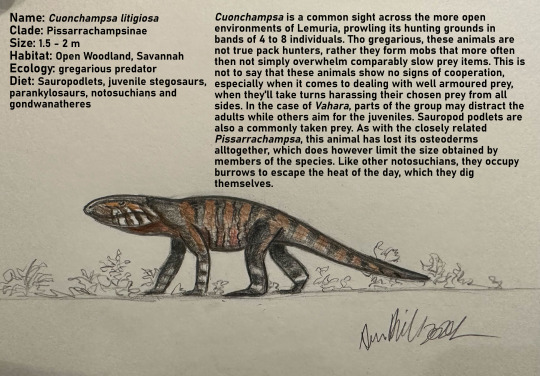 Name: Cuonchampsa litigiosa
Clade: Pissarrachampsinae
Size: 1.5 - 2 m
Habitat: Open Woodland, Savannah
Ecology: gregarious predator
Diet: Sauropodlets, juvenile stegosaurs,
parankylosaurs, notosuchians and
gondwanatheres
Cuonchampsa is a common sight across the more open
environments of Lemuria, prowling its hunting grounds in
bands of 4 to 8 individuals. Tho gregarious, these animals are
not true pack hunters, rather they form mobs that more often
then not simply overwhelm comparably slow prey items. This is
not to say that these animals show no signs of cooperation,
especially when it comes to dealing with well armoured prey,
when they'll take turns harassing their chosen prey from all
sides. In the case of Vahara, parts of the group may distract the
adults while others aim for the juveniles. Sauropod podlets are
also a commonly taken prey. As with the closely related
Pissarrachampsa, this animal has lost its osteoderms
alltogether, which does however limit the size obtained by
members of the species. Like other notosuchians, they occupy
burrows to escape the heat of the day, which they dig
themselves.